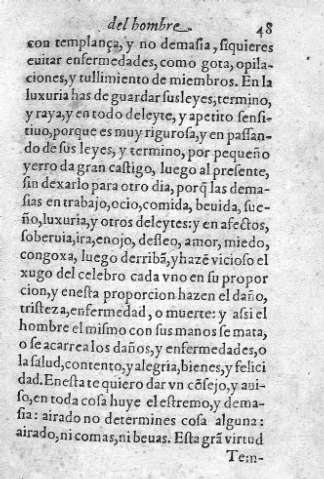 del hombre. 48
con templança, y no demasia, siquieres
euitar enfermedades, como gota, opila-
ciones, y tullimiento de miembros. En la
luxuria has de guardar susleyes, termino,
y raya, y en todo deleyte, y apetito sensi-
tiuo, porque es muy rigurosa, y en passan-
do de sus leyes, y termino, por pequeño
yerro da gran castigo, luego al presente,
sin dexarlo para otro dia, porq̃ las dema-
sias en trabajo, ocio, comida, beuida, sue-
ño, luxuria, y otros deleytes: y en afectos,
soberuia, ira, enojo, desseo, amor, miedo,
congoxa, luego derribã, y hazẽ vicioso el
xugo del celebro cada vno en su propor
cion, y enesta proporcion hazen el daño,
tristeza, enfermedad, o muerte: y assi el
hombre el mismo con sus manos se mata,
o se acarrea los daños, y enfermedades, o
la salud, contento, y alegria, bienes, y felici
dad. Enesta te quiero dar vn cõsejo, y aui-
so, en toda cosa huye el estremo, y dema-
sia: airado no determines cosa alguna:
airado, ni comas, ni beuas. Esta grã virtud
Tem-